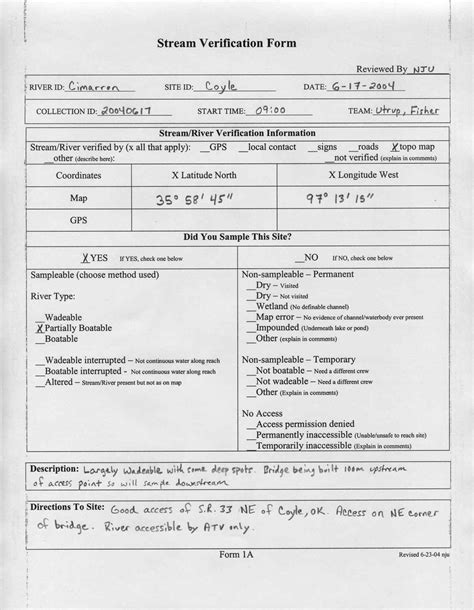 Stream Verification Form
Reviewed By NJU
RIVER ID: Cimarron SITE ID: Coyle DATE: 6-17-2004
COLLECTION ID: 20040617 START TIME: 09:00 TEAM: Utrup, Fisher
Stream/River Verification Information
Stream/River verified by (x all that apply): __GPS __local contact __signs __roads X topo map
__other (describe here): __not verified (explain in comments)
Coordinates X Latitude North X Longitude West
Map 35° 58' 45" 97° 13' 15"
GPS
Did You Sample This Site?
X YES If YES, check one below __NO If NO, check one below
Sampleable (choose method used)
River Type:
__Wadeable
X Partially Boatable
__Boatable
__Wadeable interrupted – Not continuous water along reach
__Boatable interrupted - Not continuous water along reach
__Altered – Stream/River present but not as on map
Non-sampleable – Permanent
__Dry – Visited
__Dry – Not visited
__Wetland (No definable channel)
__Map error – No evidence of channel/waterbody ever present
__Impounded (Underneath lake or pond)
__Other (explain in comments)
Non-sampleable – Temporary
__Not boatable – Need a different crew
__Not wadeable – Need a different crew
__Other (Explain in comments)
No Access
__Access permission denied
__Permanently inaccessible (Unable/unsafe to reach site)
__Temporarily inaccessible (Explain in comments)
Description: Largely wadeable with some deep spots. Bridge being built 100m upstream
of access point so will sample downstream.
Directions To Site: Good access of S.R. 33 NE of Coyle, OK. Access on NE corner
of bridge. River accessible by ATV only.
Form 1A
Revised 6-23-04 nju